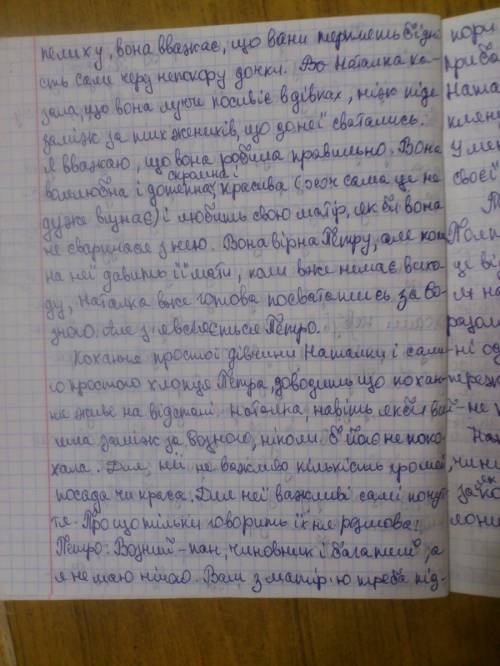 пелиху, вона вважає, що вони терплять бідні
сть саме через непокору дочки. Бо Наталка ка-
зала, що вона лучше посивіє в дівках, ніж піде
заміж за тих женихів, що до неї сватались.
Я вважаю, що вона робила правильно. Вона
скромна і
волелюбна і дотепна, красива (хоч сама це не
дуже визнає) і любить свою матір, як би вона
не сварилася з нею. Вона вірна Петру, але коли
на неї давить її мати, коли вже немає вихо-
ду, Наталка вже готова посвататись за Во-
зного. Але з'являється Петро.
Кохання простої дівчини Наталки і само-
го простого хлопця Петра, доводить що кохан-
ня живе на відстані. Наталка, навіть якби вий-
шла заміж за возного, ніколи б його не поко-
хала. Для неї не важливо кількість грошей
посада чи краса. Для неї важливі самі почут-
тя. Про що тільки говорить їхня розмова:
Петро: Возний - пан, чиновник і багатий, а
я не маю нічого. Вам з матір'ю треба під-
пори
приба
Ната
кляну
У мен
своєї
Полт
це ві
ля на
разом
ні од
переж
- не у
На
чини
як
за ко